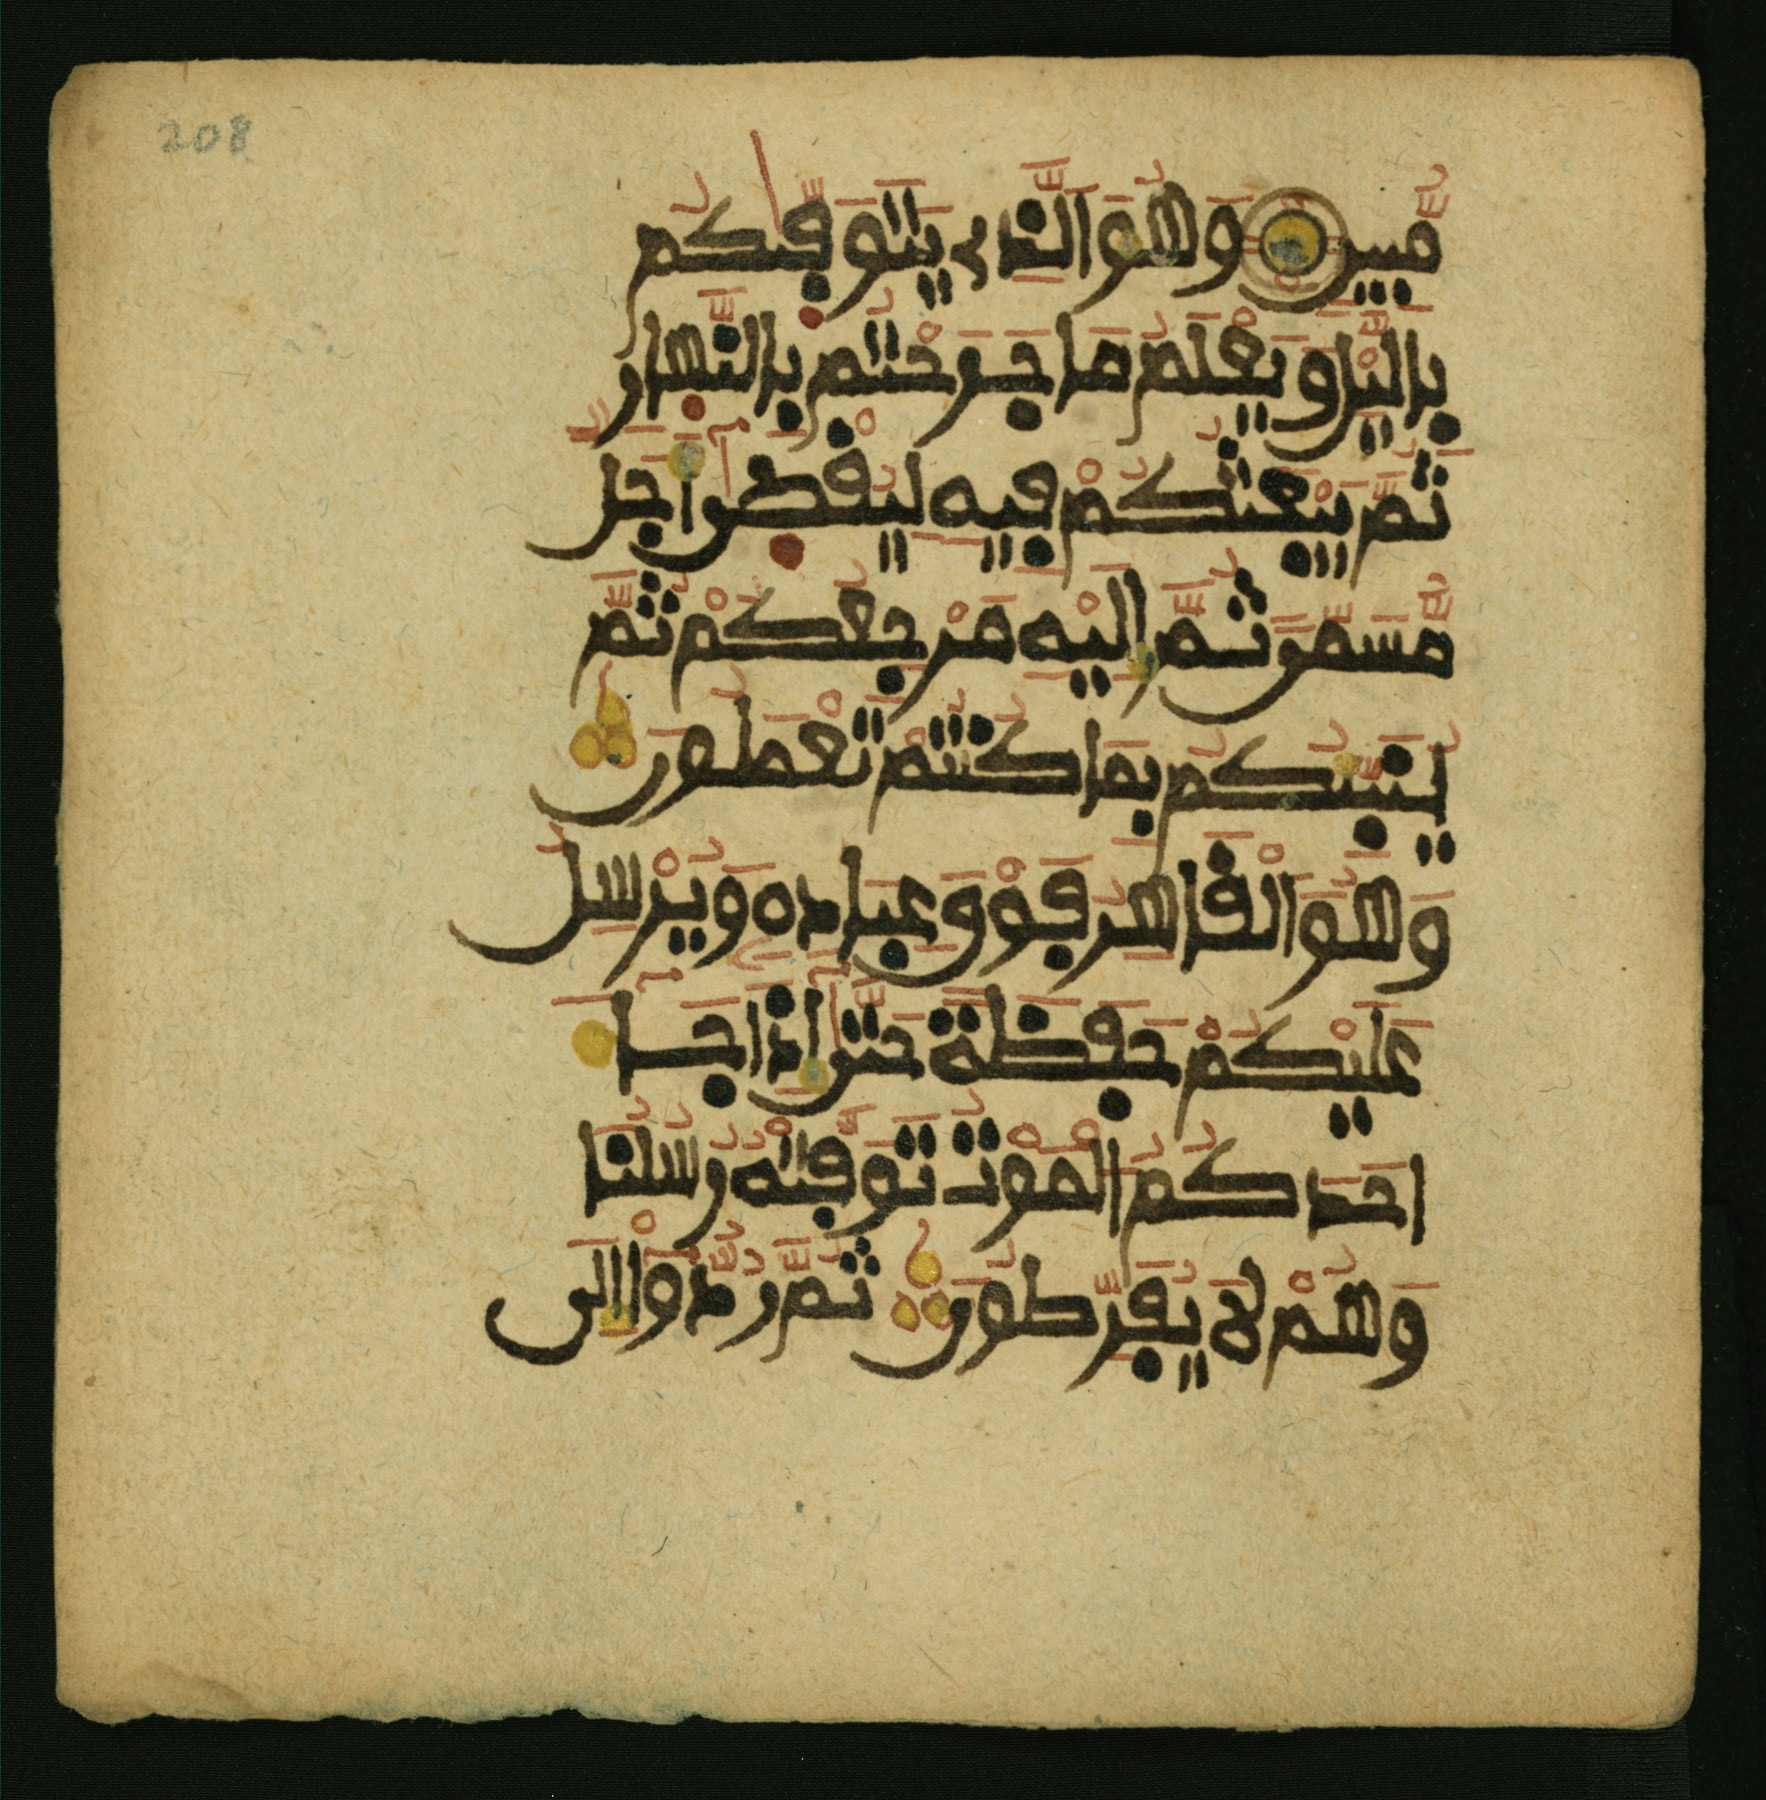 208
مُّبِينٍ وَهُوَ الَّذِي يَتَوَفّٜيكُم
بِالَّيْلِ وَيَعْلَمُ مَا جَرَحْتُم بِالنَّهٜارِ
ثُمَّ يَبْعَثُكُمْ فِيهِ لِيُقْضٜىٰٓ أَجَلٌ
مُّسَمًّى ثُمَّ إِلَيْهِ مَرْجِعُكُمْ ثُمَّ
يُنَبِّئُكُم بِمَا كُنتُمْ تَعْمَلُونَ
وَهُوَ الْقَاهِرُ فَوْقَ عِبَادِهِ وَيُرْسِلُ
عَلَيْكُمْ حَفَظَةً حَتَّىٰٓ إِذَا جَآءَ
احَدَكُمُ الْمَوْتُ تَوَفَّتْهُ رُسُلُنَا
وَهُمْ لَا يُفَرِّطُونَ ثُمَّ رُدُّوٓاْ إِلَى